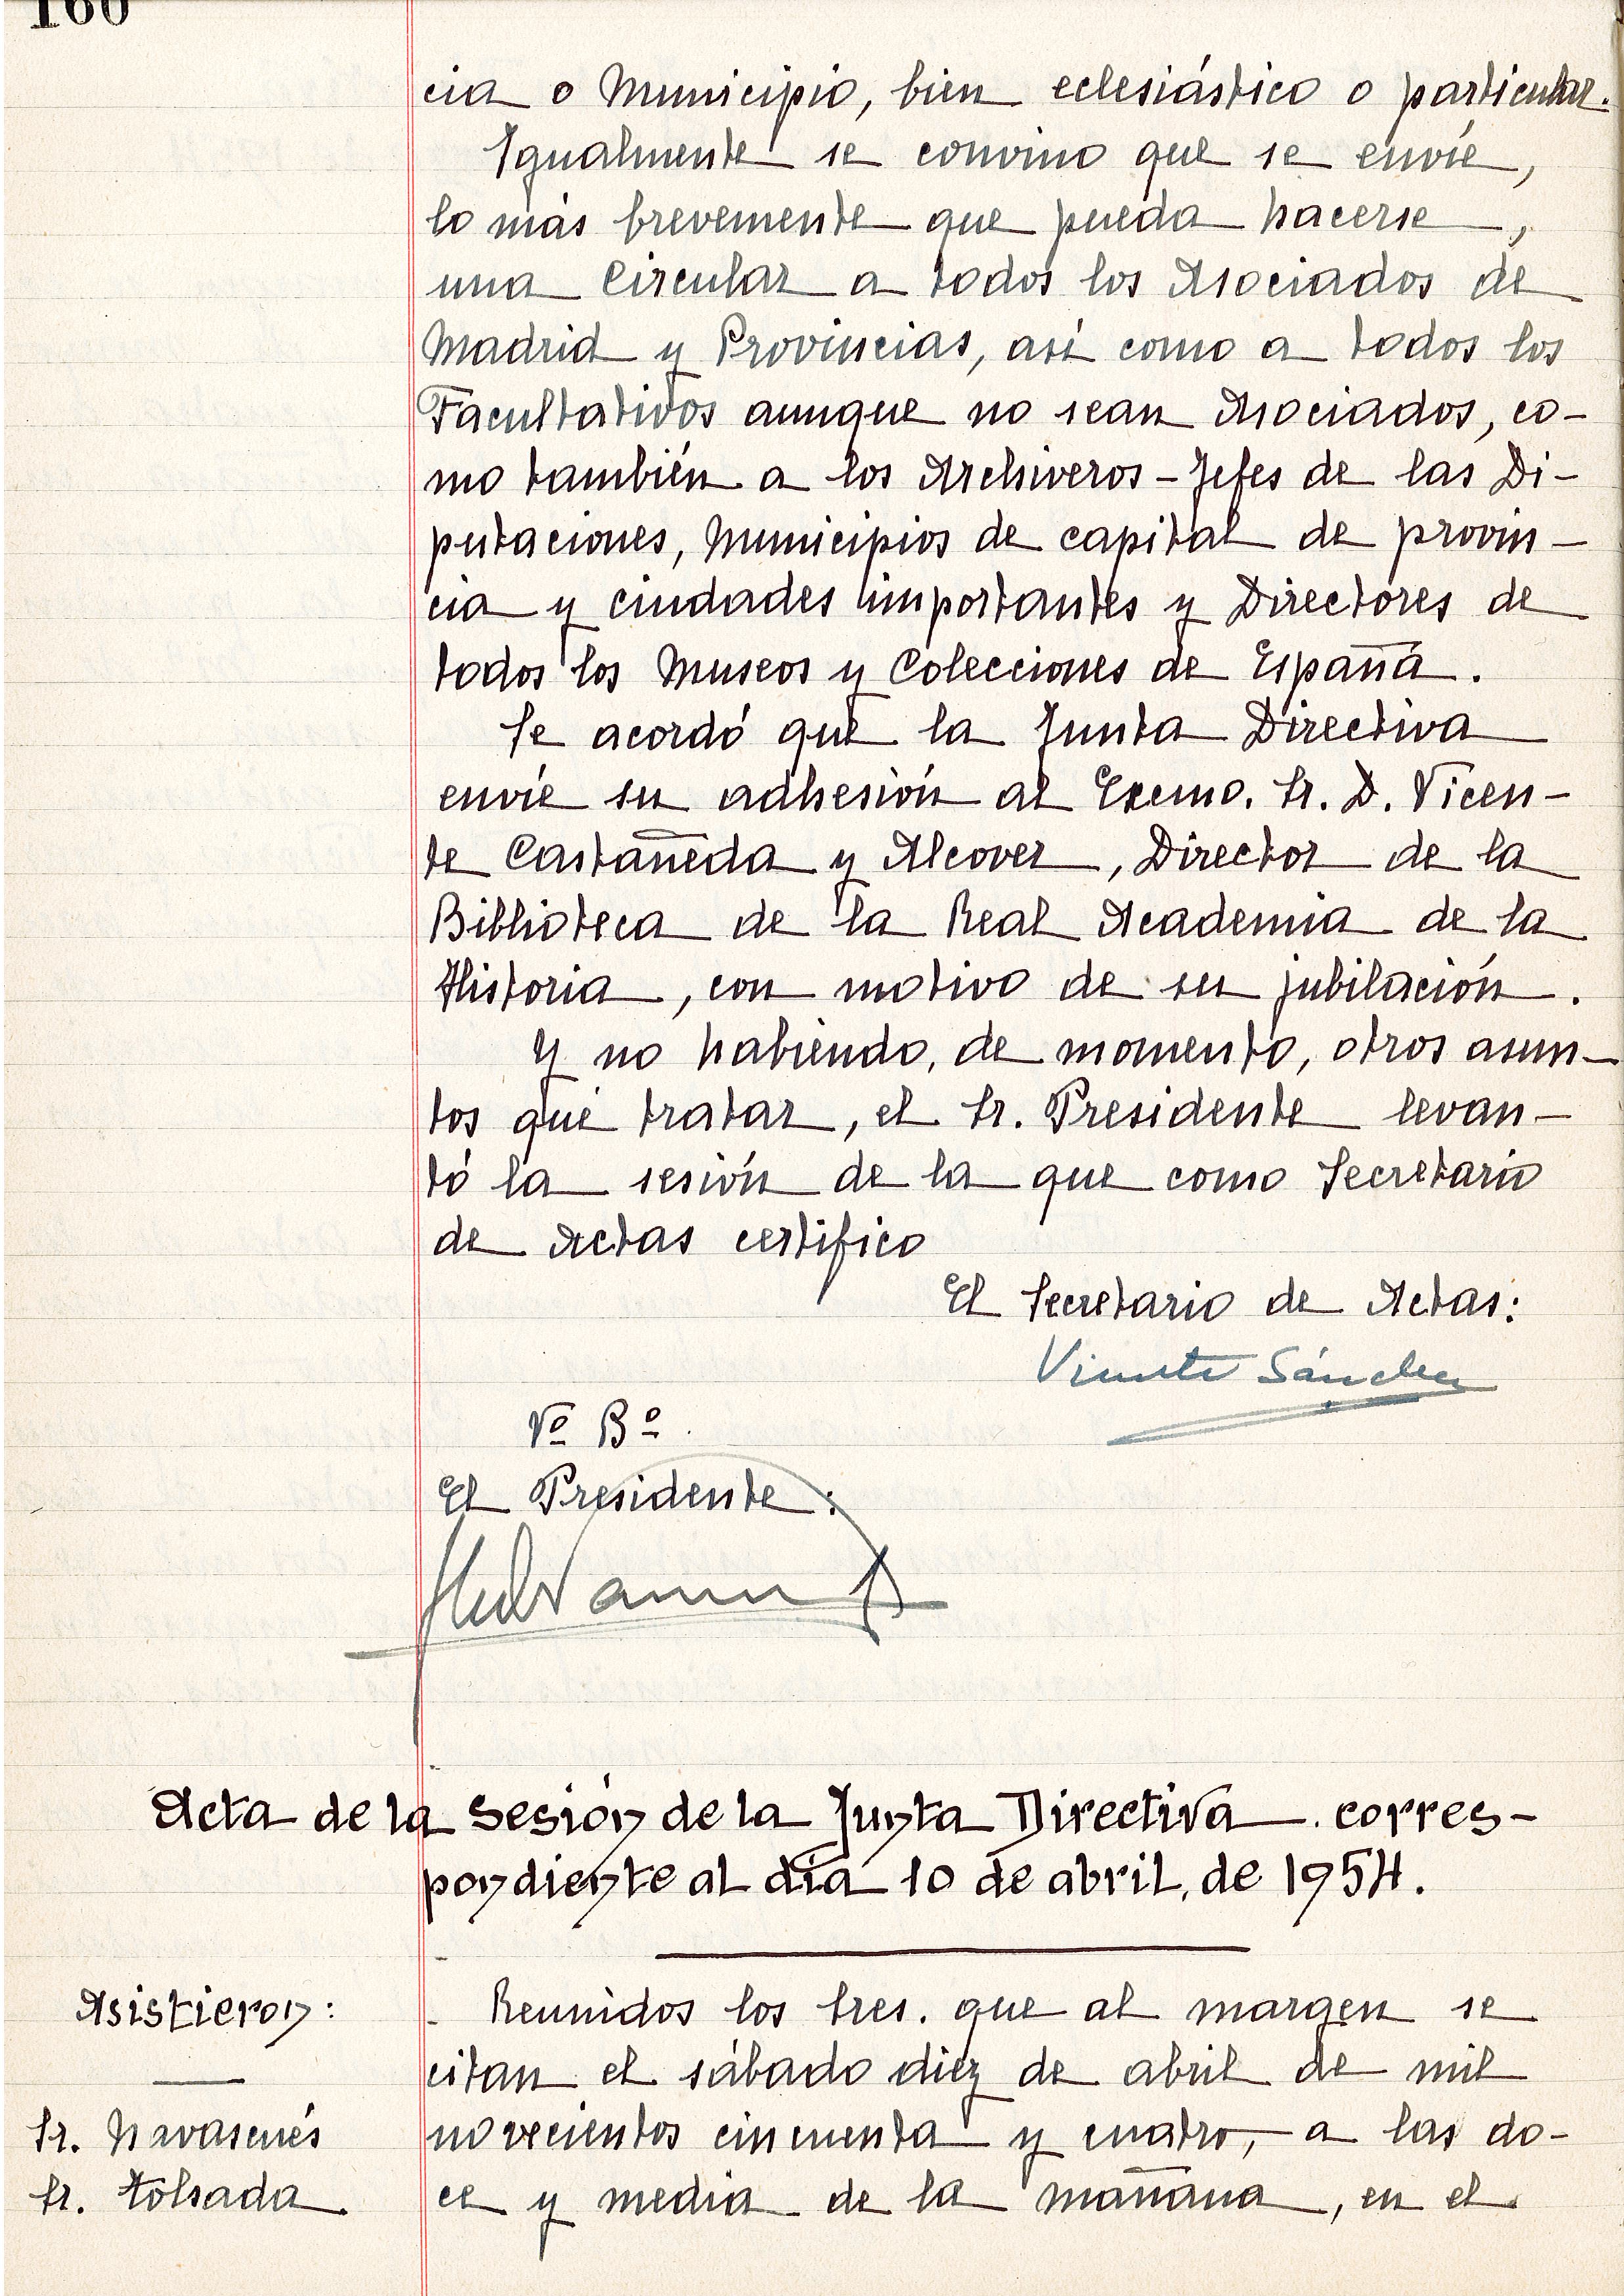 160
cia o Municipio, bien eclesiástico o particular.
Igualmente se convino que se envíe,
lo más brevemente que pueda hacerse,
una Circular a todos los Asociados de
Madrid y Provincias, así como a todos los
Facultativos aunque no sean Asociados, co-
mo también a los Archiveros-Jefes de las Di-
putaciones, Municipios de capital de provin-
cia y ciudades importantes y Directores de
todos los Museos y Colecciones de España.
Se acordó que la Junta Directiva
envíe su adhesión al Excmo. Sr. D. Vicen-
te Castañeda y Alcover, Director de la
Biblioteca de la Real Academia de la
Historia, con motivo de su jubilación.
Y no habiendo, de momento, otros asun-
tos que tratar, el Sr. Presidente levan-
tó la sesión de la que como Secretario
de Actas certifico
El Secretario de Actas:
Vicente Sánchez
Vº Bº.
El Presidente:
Acta de la Sesión de la Junta Directiva corres-
pondiente al día 10 de abril, de 1954.
Asistieron:
Sr. Navascués
Sr. Tolsada
Reunidos los Sres. que al margen se
citan el sábado diez de abril de mil
novecientos cincuenta y cuatro, a las do-
ce y media de la mañana, en el